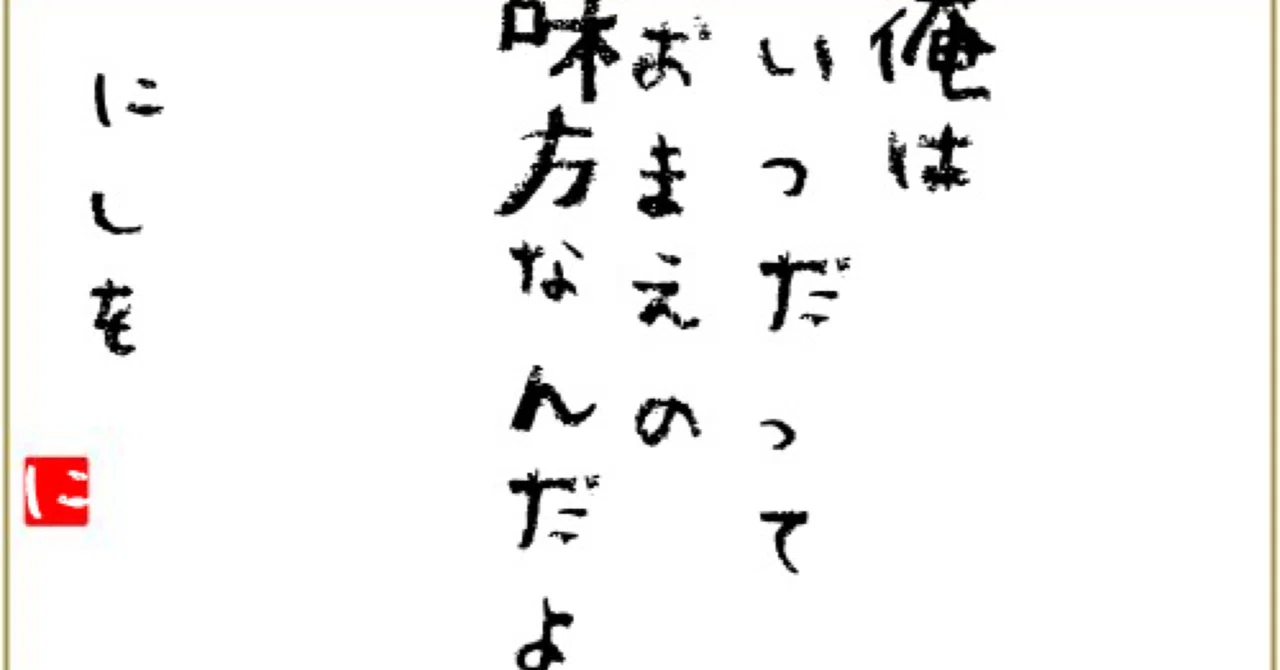 俺は
いつだって
おまえの
味方なんだよ
にしを
に